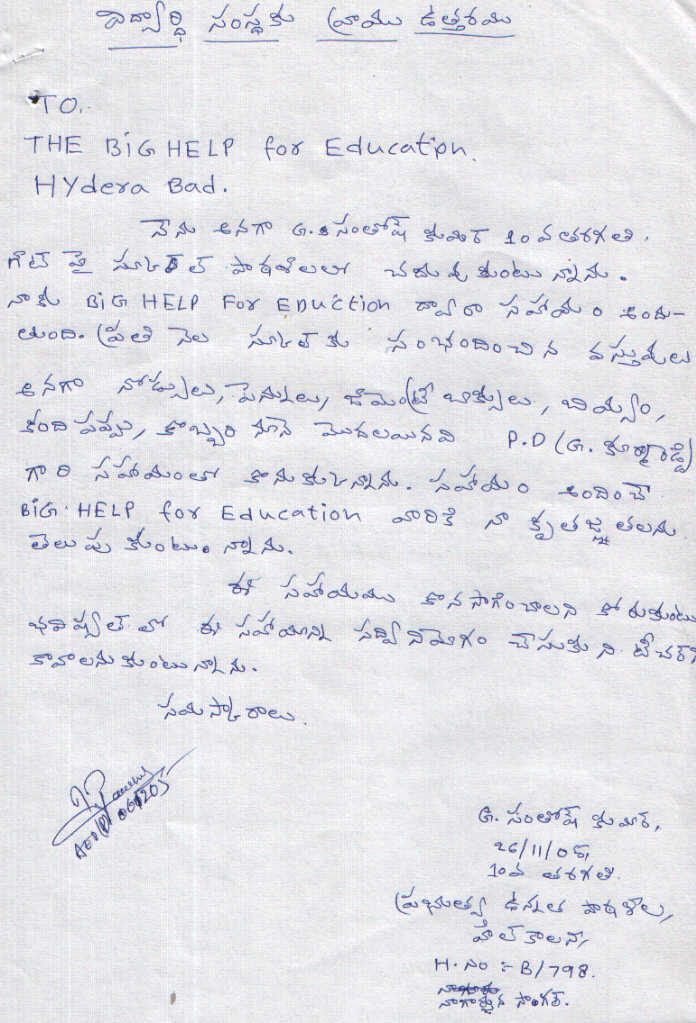 విద్యార్థి సంస్థకు వ్రాయు ఉత్తరము
TO.
THE BiG HELP for Education.
HYdera Bad.
నేను అనగా G. సంతోష్ కుమార్ 10వ తరగతి.
గేట్ పై స్కూల్ పాఠశాలలో చదువుకుంటున్నాను.
నాకు BiG HELP For EDUCtion ద్వారా సహాయం అందు-
తుంది. ప్రతి నెల స్కూల్ కు సంభందించిన వస్తువులు
అనగా నోట్సులు, పెన్నులు, జామెంట్రీ బాక్సులు, బియ్యం,
కంది పప్పు, కొబ్బరి నూనె మొదలయినవి P.D (G.
గారి సహాయంతో కొనుకున్నాను. సహాయం అందించే
BiG. HELP for Education వారికి నా కృతజ్ఞతలను
తెలుపుకుంటున్నాను.
ఈ సహాయము కొనసాగించాలని కోరుకుంటు
భవిష్యత్ లో ఈ సహాయాన్ని సద్వినియోగం చేసుకుని టీచర్
కావాలనుకుంటున్నాను.
నమస్కారాలు.
G. సంతోష్ కుమార్,
26/11/05,
10వ తరగతి.
ప్రభుత్వ ఉన్నత పాఠశాల,
హిల్ కాలని,
H.No :- B/798.
నాగార్జున సాగర్.